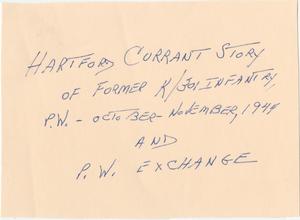 HARTFORD CURRANT STORY
OF FORMER K/301 INFANTRY,
P.W. - OCTOBER - NOVEMBER, 1944
AND
P. W. EXCHANGE